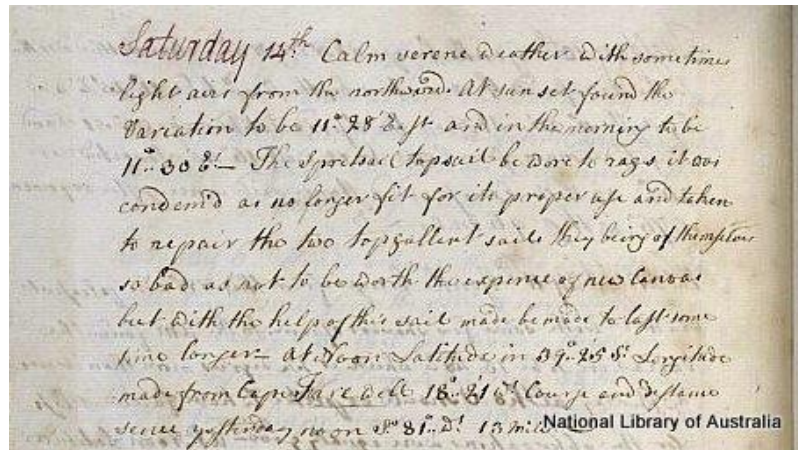 Saturday 14th Calm serene weather with sometimes
light airs from the northward. At sun set found the
Variation to be 11°..28' East and in the morning to be
11°..30' Et. — The Spritsail topsail be wore to rags it was
condem'd as no longer fit for its proper use and taken
to repair the two topgallent sails they being of themselves
so bad as not to be worth the expence of new Canvas
but with the help of this sail made be made to last some
time longer — At Noon Latitude in 39°..25' S. Longitude
made from Cape Farewell 18°..21' Wt. Course and distance
sence yesterday noon So. 81° Wt. 13 Miles
National Library of Australia